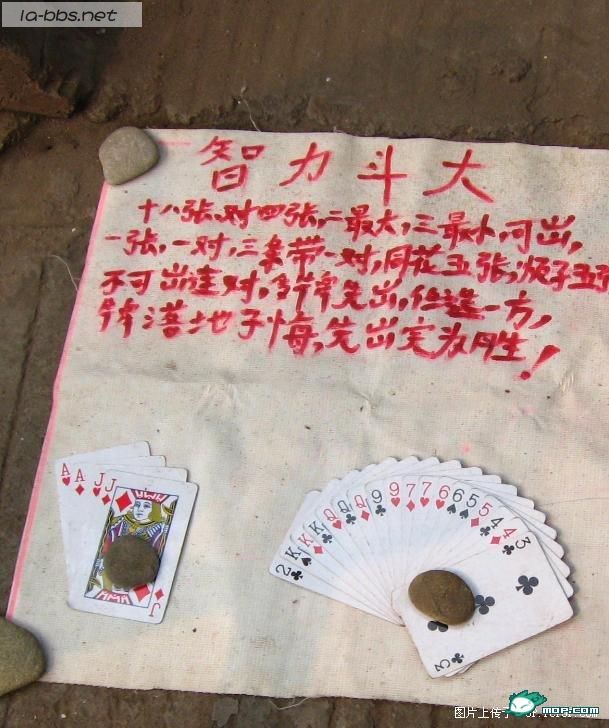 la-bbs.net
智力斗大
十八张,对四张,二最大,三最小,可出,
一张,一对,三条带一对,同花五张,顺子五
不可出连对,多牌先出,任选一方,
牌落地悔,先出完为胜!
A A J J
J
2 K K K Q Q Q 9 9 7 7 6 6 5 5 4 4 3
3
图片上传于
MOP.COM